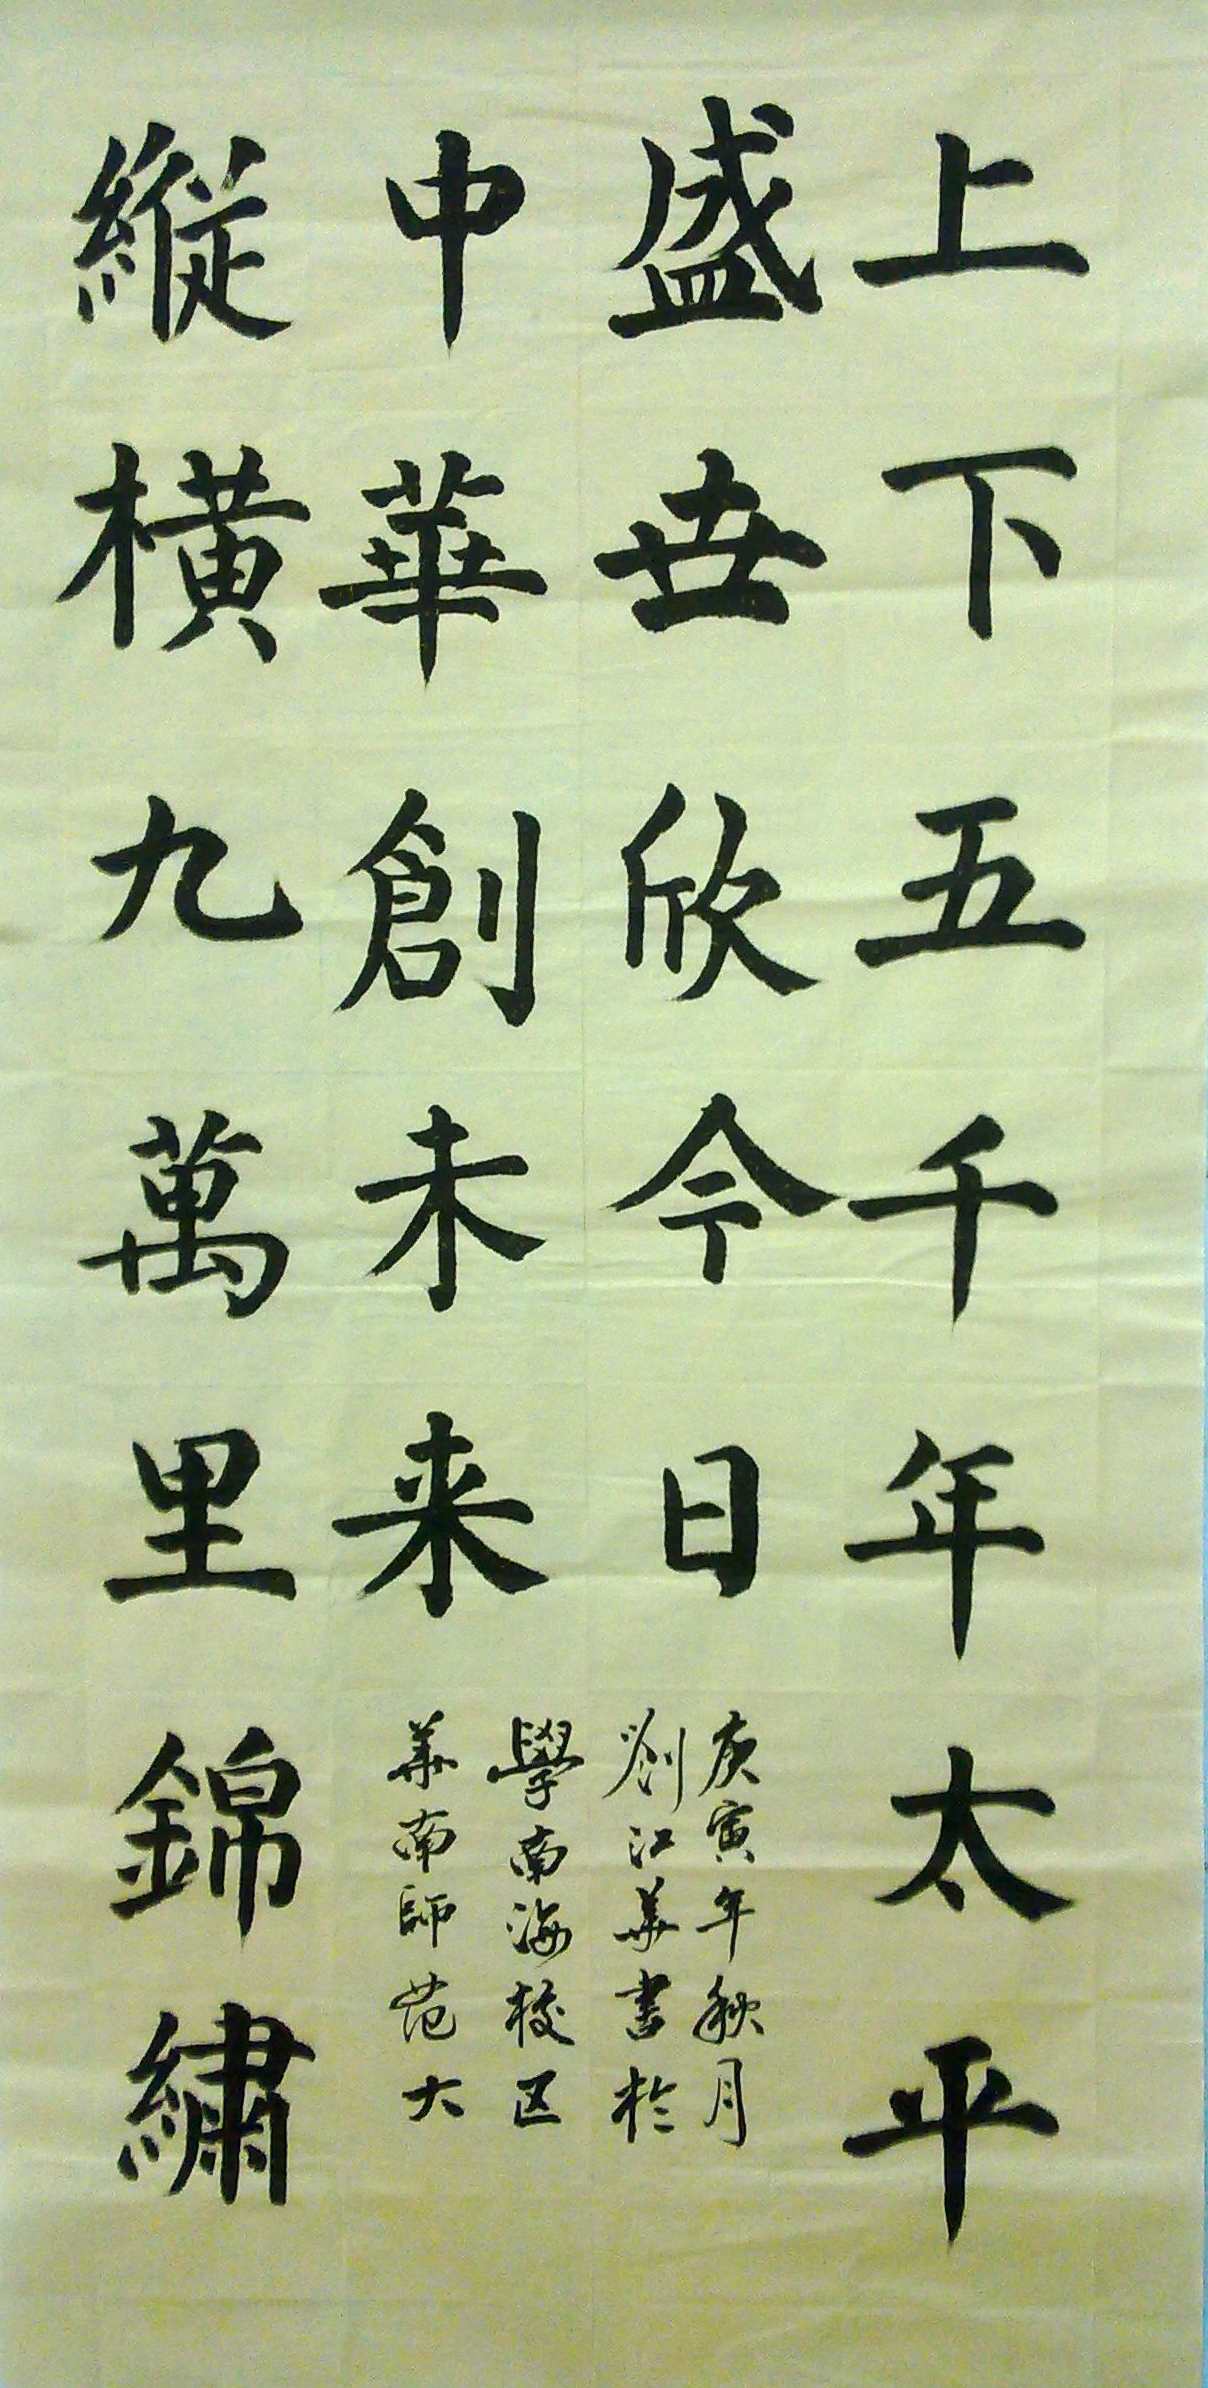 上下五千年太平
盛世欣今日
縱橫九萬里錦繡
中華創未来
庚寅年秋月
劉江華書於
華南師范大
學南海校区